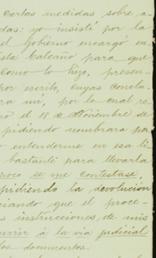 Cortas medidas sobre a
das: yo insistí por la
el Gobierno encargó en
ista Calcaño para que
como lo hizo, presen
por escrito, cuyas conclu
ra mí, por la cual re
ro el 18 de Noviembre de
pidiendo nombrara pa
entenderme en esa li
bastante para llevarla
poco se me contestase,
pidiendo la devolución
ciando que el proce
instrucciones, de mis
currir á la vía judicial
los documentos.